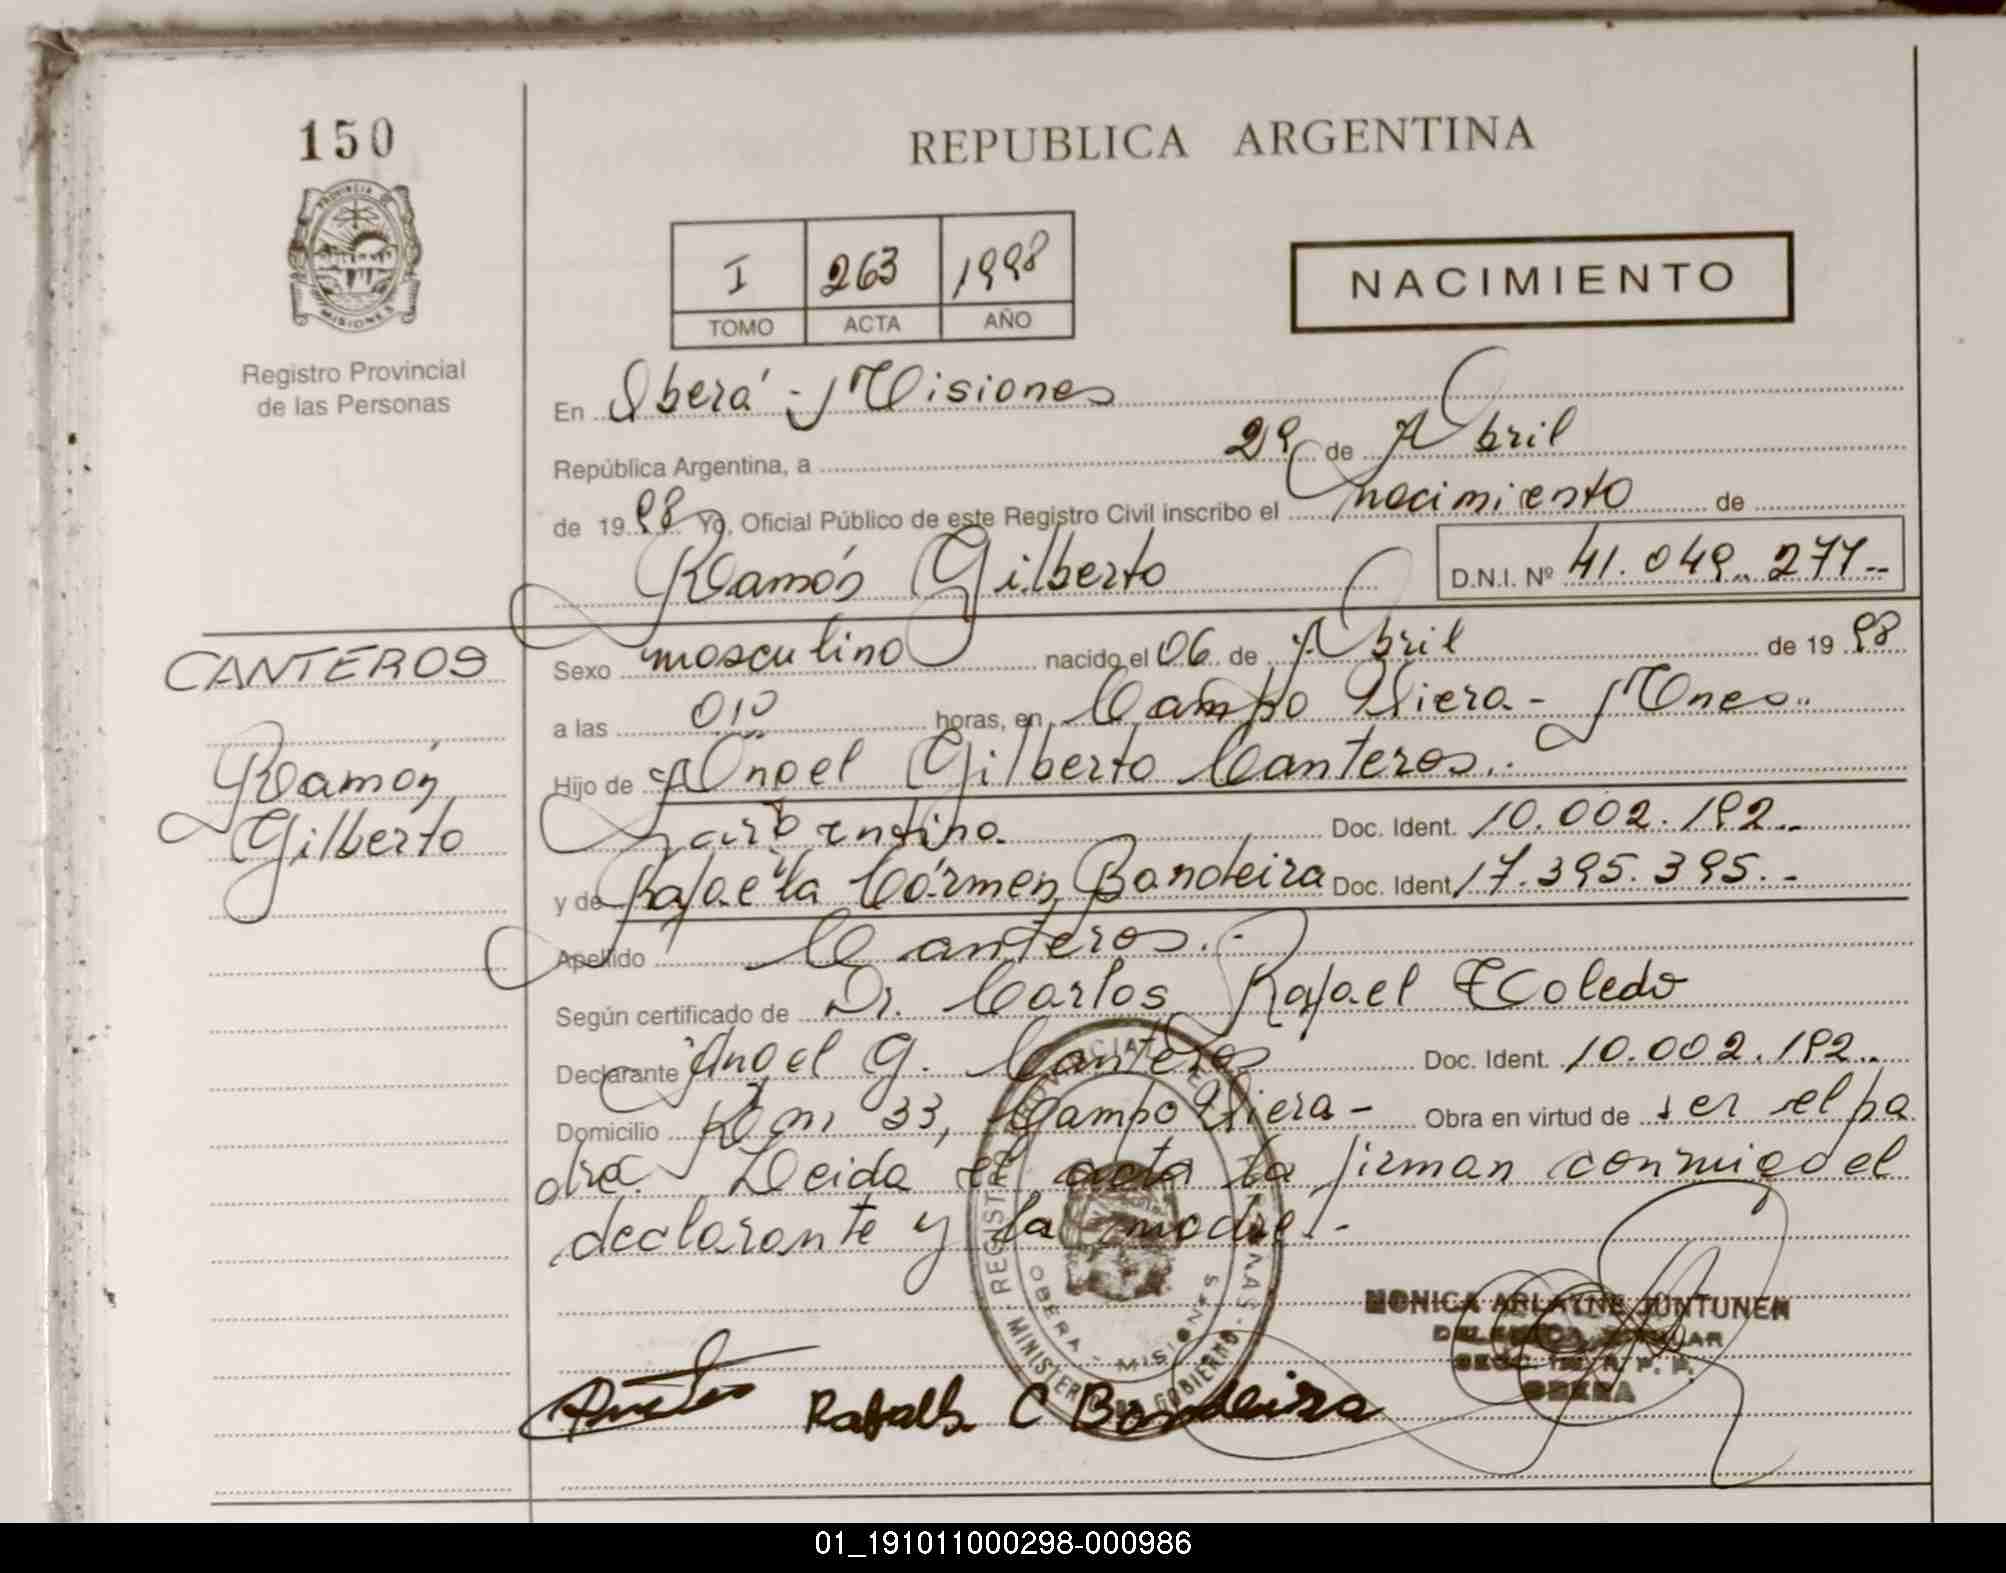 150
PROVINCIA DE
MISIONES
Registro Provincial
de las Personas
REPUBLICA ARGENTINA
I 263 1998
TOMO ACTA AÑO
NACIMIENTO
En Oberá - Misiones
República Argentina, a 29 de Abril
de 19 98 Yo, Oficial Público de este Registro Civil inscribo el nacimiento de
Ramón Gilberto D.N.I. Nº 41.049.277--
CANTEROS
Ramón
Gilberto
Sexo masculino nacido el 06 de Abril de 19 98
a las 010 horas, en Campo Viera - Mnes..
Hijo de Angel Gilberto Canteros..
argentino. Doc. Ident. 10.002.192..
y de Rafaela Cármen Bandeira Doc. Ident. 17.395.395.-
Apellido Canteros..-
Según certificado de Dr. Carlos Rafael Toledo
Declarante Angel G. Canteros Doc. Ident. 10.002.192..
Domicilio Km 33, Campo Viera - Obra en virtud de ser el pa
dre. Leida el acta la firman conmigo el
declarante y la madre.-
REGISTRO PROVINCIAL DE LAS PERSONAS -
MINISTERIO DE GOBIERNO
OBERA - MISIONES
MONICA ARLAYNE JUNTUNEN
DELEGADA TITULAR
SECC. 1a. R. P. P.
OBERA
Rafaela C Bandeira
01_191011000298-000986